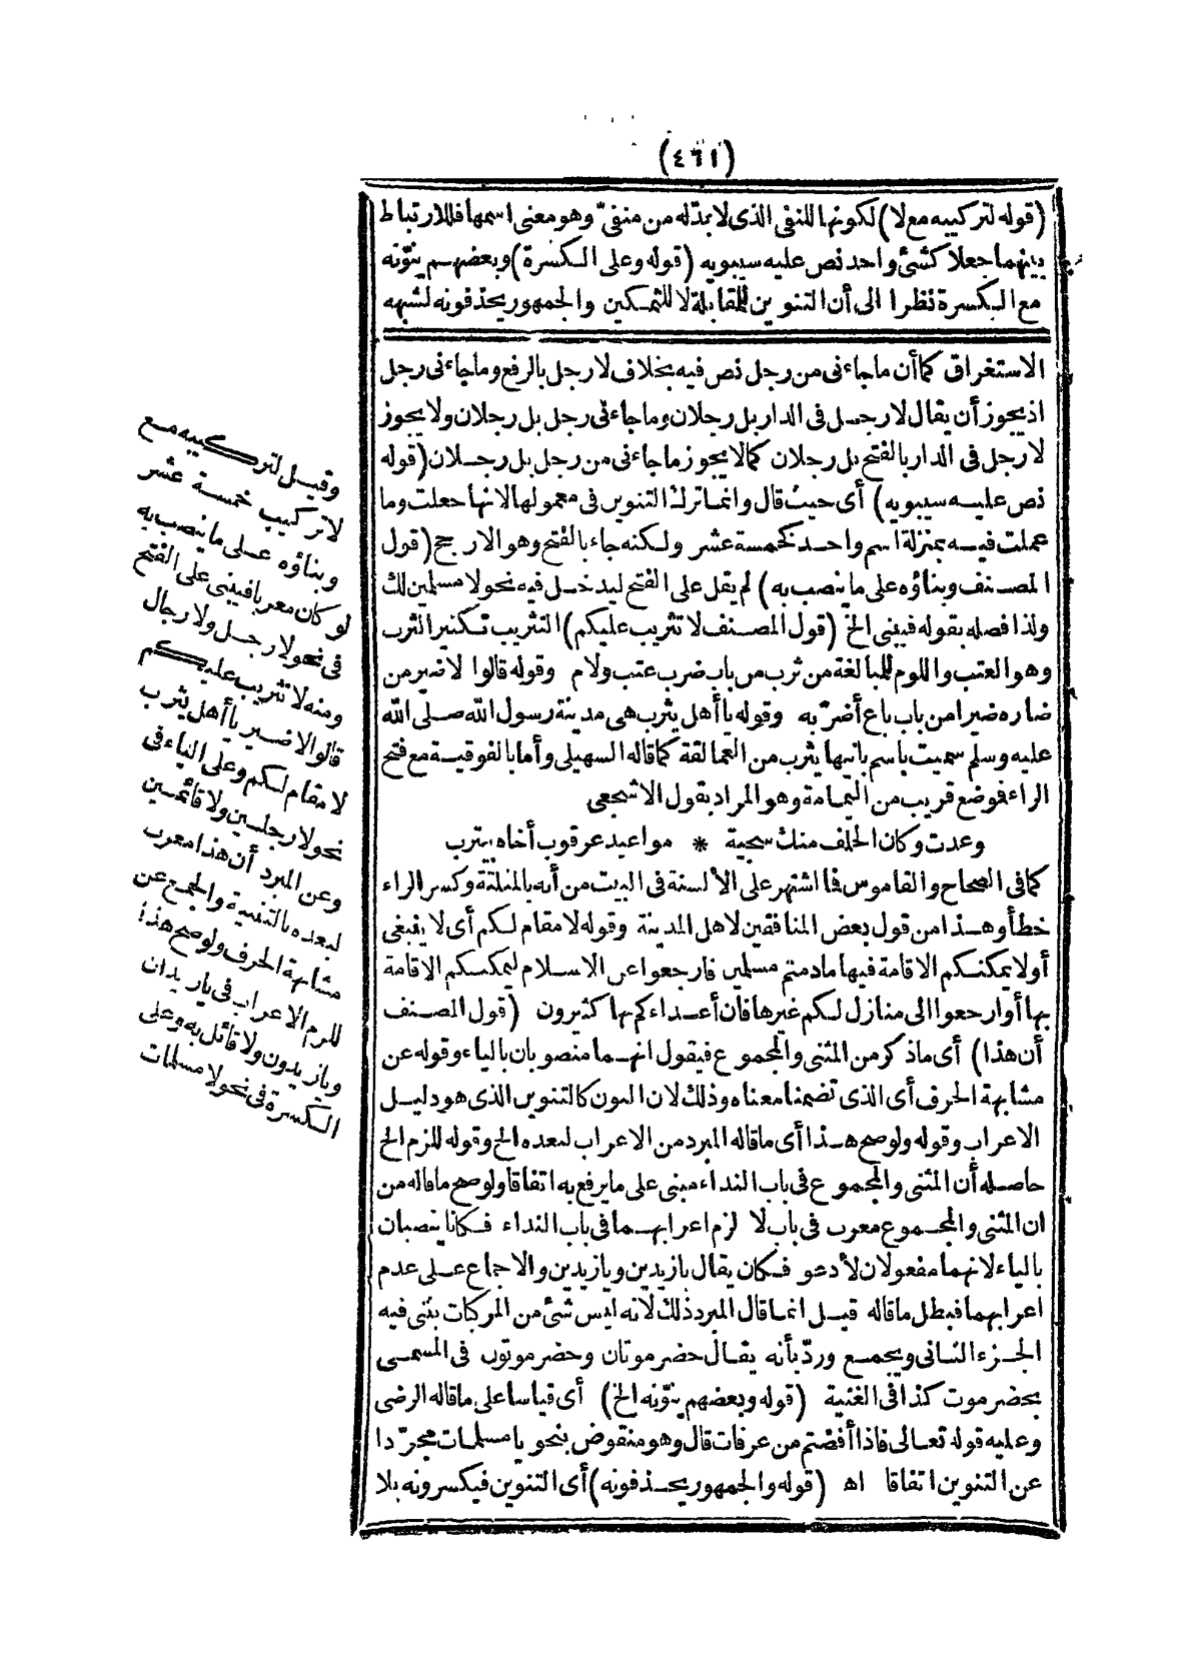 (٤٦١)
(قوله لتركيبه مع لا) لكونها للنفى الذى لا بدّله من منفىّ وهو معنى اسمها فللارتباط
بينهما جعلا كشئ واحد نص عليه سيبويه (قوله وعلى الكسرة) وبعضهم ينوّنه
مع الكسرة نظرا الى أن التنوين للمقابلة لا للتمكين والجمهور يحذفونه لشبهه
الاستغراق كما أن ما جاءنى من رجل نص فيه بخلاف لا رجل بالرفع وما جاءنى رجل
اذ يجوز أن يقال لا رجل فى الدار بل رجلان وما جاءنى رجل بل رجلان ولا يجوز
لا رجل فى الدار بالفتح بل رجلان كما لا يجوز ما جاءنى من رجل بل رجلان (قوله
نص عليه سيبويه) أى حيث قال وانما ترك التنوين فى معمولها لانها جعلت وما
عملت فيه بمنزلة اسم واحد كخمسة عشر ولكنه جاء بالفتح وهو الارجح (قول
المصنف وبناؤه على ما ينصب به) لم يقل على الفتح ليدخل فيه نحو لا مسلمين لك
ولذا فصله بقوله فيبنى الخ (قول المصنف لا تثريب عليكم) التثريب تكثير الثرب
وهو العتب واللوم للمبالغة من ثرب من باب ضرب عتب ولام وقوله قالوا لا ضير من
ضاره ضيرا من باب باع أضرّ به وقوله يا أهل يثرب هى مدينة رسول الله صلى الله
عليه وسلم سميت باسم بانيها يثرب من العمالقة كما قاله السهيلى وأما بالفوقية مع فتح
الراء فموضع قريب من اليمامة وهو المراد بقول الاشجعى
وعدت وكان الخلف منك سجية * مواعيد عرقوب أخاه بيترب
كما فى الصحاح والقاموس فما اشتهر على الألسنة فى البيت من أنه بالمثلثة وكسر الراء
خطأ وهذا من قول بعض المنافقين لاهل المدينة وقوله لا مقام لكم أى لا ينبغى
أو لا يمكنكم الاقامة فيها ما دمتم مسلمين فارجعوا عن الاسلام ليمكنكم الاقامة
بها أو ارجعوا الى منازل لكم غيرها فان أعداءكم بها كثيرون (قول المصنف
أن هذا) أى ما ذكر من المثنى والمجموع فيقول انهما منصوبان بالياء وقوله عن
مشابهة الحرف أى الذى تضمنا معناه وذلك لان النون كالتنوين الذى هو دليل
الاعراب وقوله ولو صح هذا أى ما قاله المبرد من الاعراب لبعده الخ وقوله للزم الخ
حاصله أن المثنى والمجموع فى باب النداء مبنى على ما يرفع به اتفاقا ولو صح ما قاله من
ان المثنى والمجموع معرب فى باب لا لزم اعرابهما فى باب النداء فكانا ينصبان
بالياء لانهما مفعولان لأدعو فكان يقال يا زيدين ويا زيدين والاجماع على عدم
اعرابهما فبطل ما قاله قيل انما قال المبرد ذلك لانه ليس شئ من المركبات يثنى فيه
الجزء الثانى ويجمع وردّ بأنه يقال حضرموتان وحضرموتون فى المسمى
بحضرموت كذا فى الغنية (قوله وبعضهم ينوّنه الخ) أى قياسا على ما قاله الرضى
وعليه قوله تعالى فاذا أفضتم من عرفات قال وهو منقوض بنحو يا مسلمات مجرّدا
عن التنوين اتفاقا اه (قوله والجمهور يحذفونه) أى التنوين فيكسرونه بلا
وقيل لتركيبه مع
لا تركيب خمسة عشر
وبناؤه على ما ينصب به
لو كان معربا فيبنى على الفتح
فى نحو لا رجل ولا رجال
ومنه لا تثريب عليكم
قالوا لا ضير يا أهل يثرب
لا مقام لكم وعلى الياء فى
نحو لا رجلين ولا قائمين
وعن المبرد أن هذا معرب
لبعده بالتثنية والجمع عن
مشابهة الحرف ولو صح هذا
للزم الاعراب فى يا زيدان
ويا زيدون ولا قائل به وعلى
الكسرة فى نحو لا مسلمات